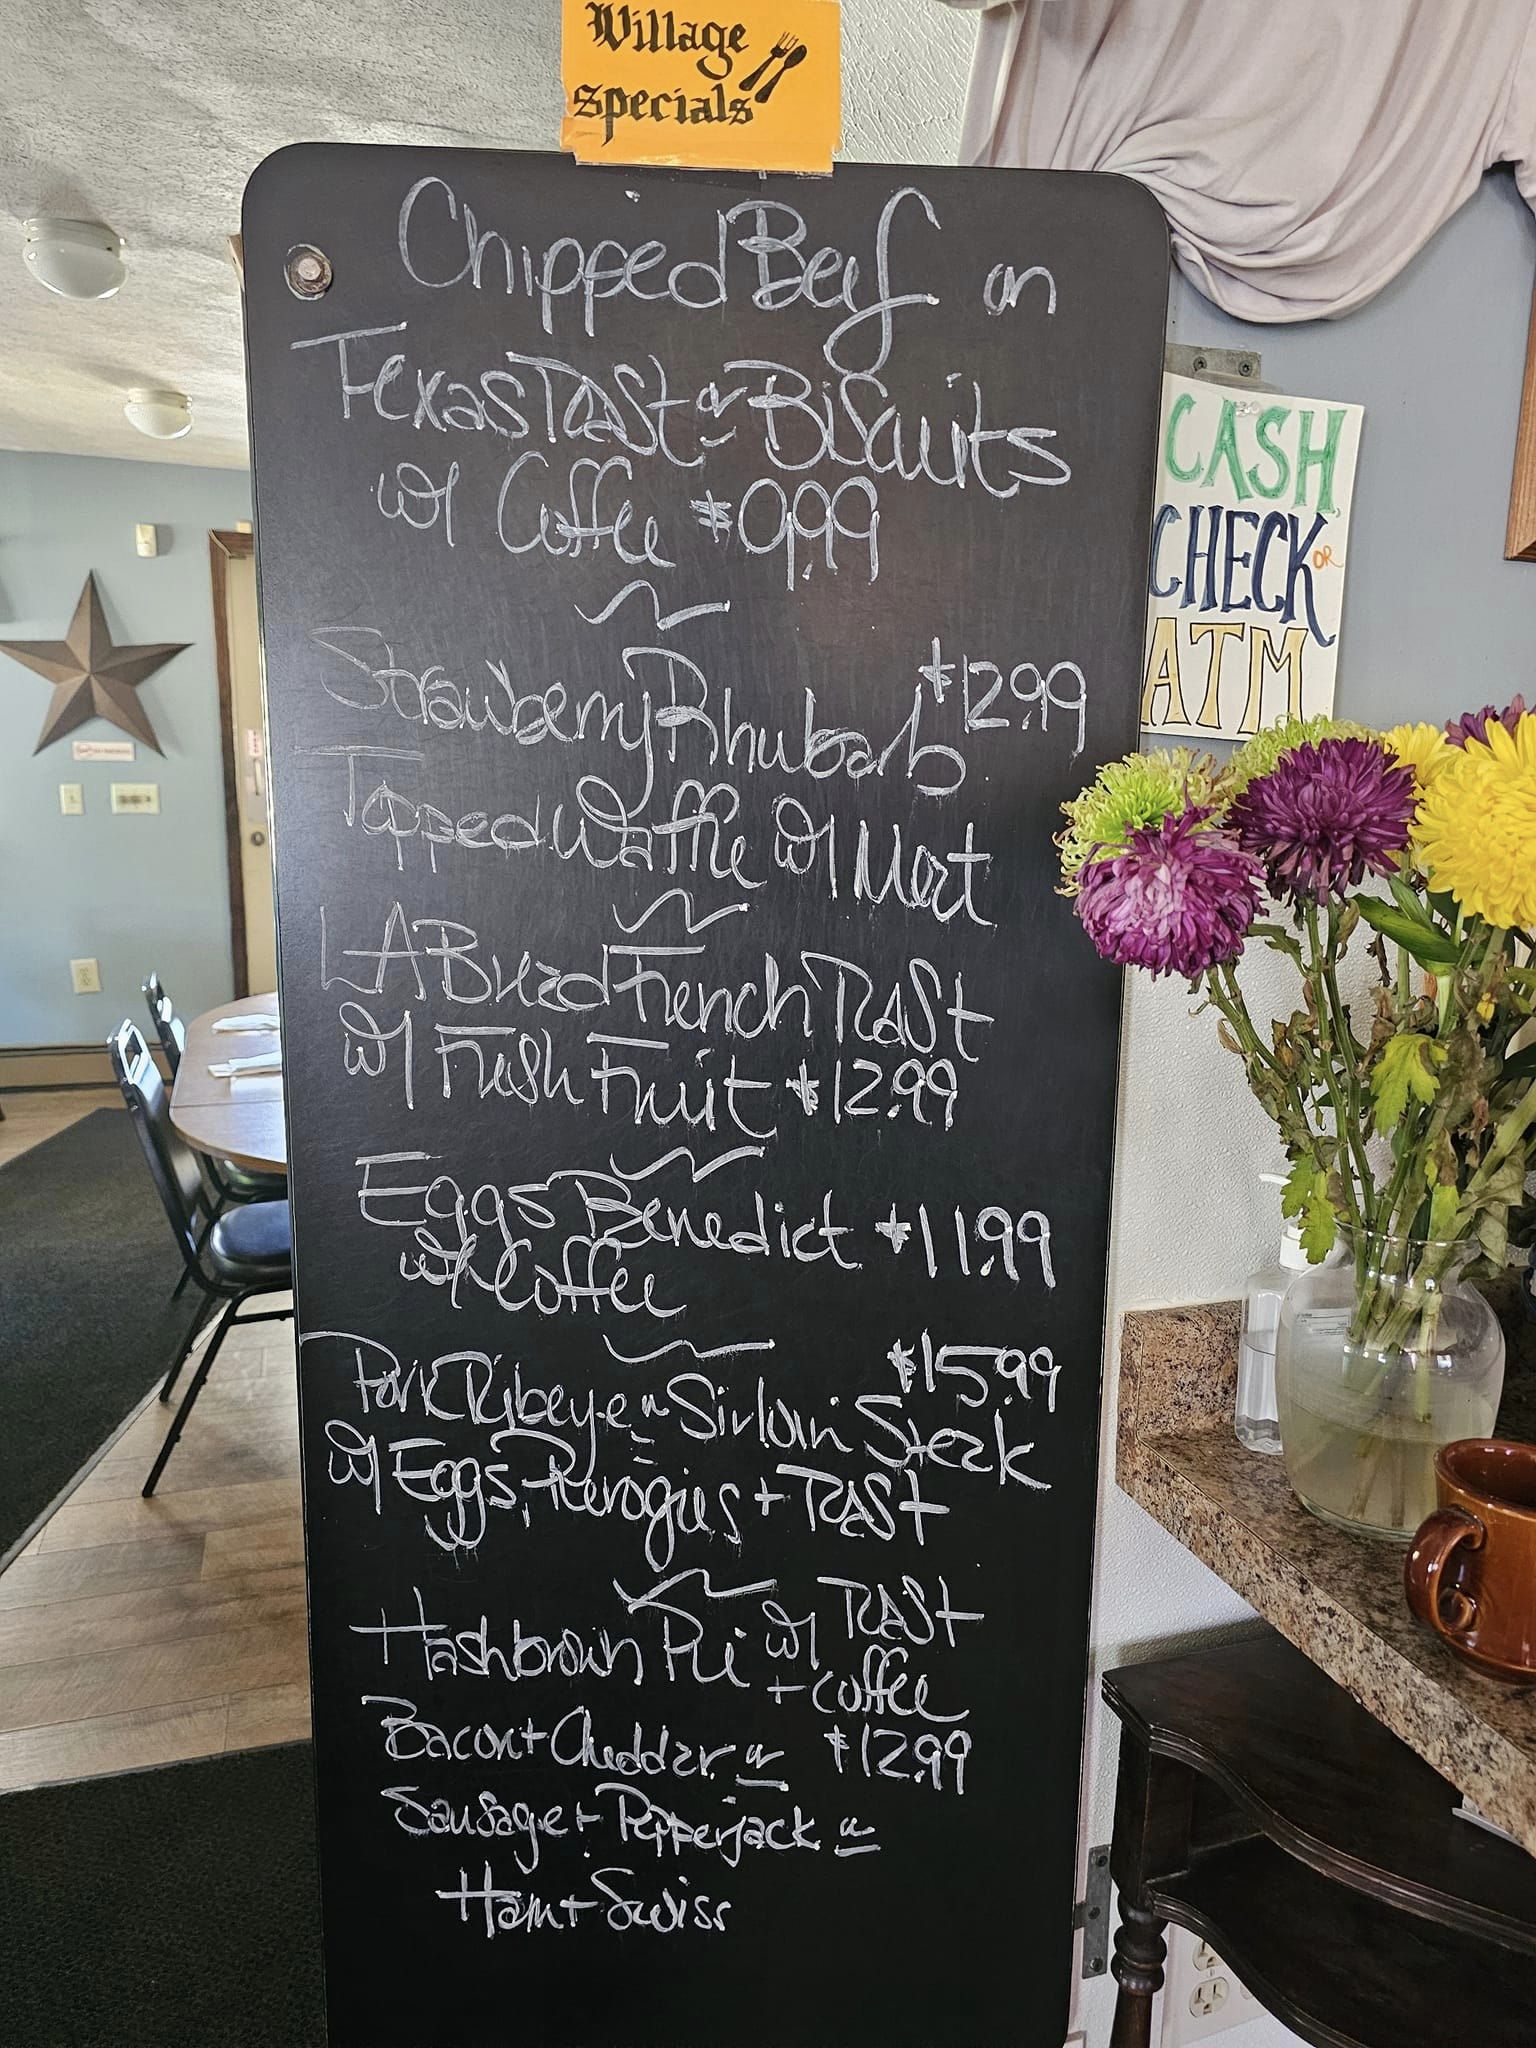 Village
specials
Chipped Beef on
Texas Toast or Biscuits
w/ Coffee $9.99
Strawberry Rhubarb $12.99
Topped Waffle w/ Meat
LA Buzzd French Toast
w/ Fresh Fruit $12.99
Eggs Benedict $11.99
w/ Coffee
$15.99
Pork Ribeye or Sirloin Steak
w/ Eggs, Pierogies + Toast
Hashbrown Pie w/ Toast
+ coffee
Bacon + Cheddar or $12.99
Sausage + Pepperjack or
Ham + Swiss
CASH
CHECK OR
ATM